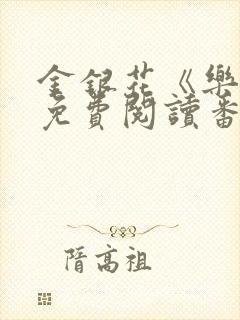 金銀花《樂
免費閱讀番
隋高祖